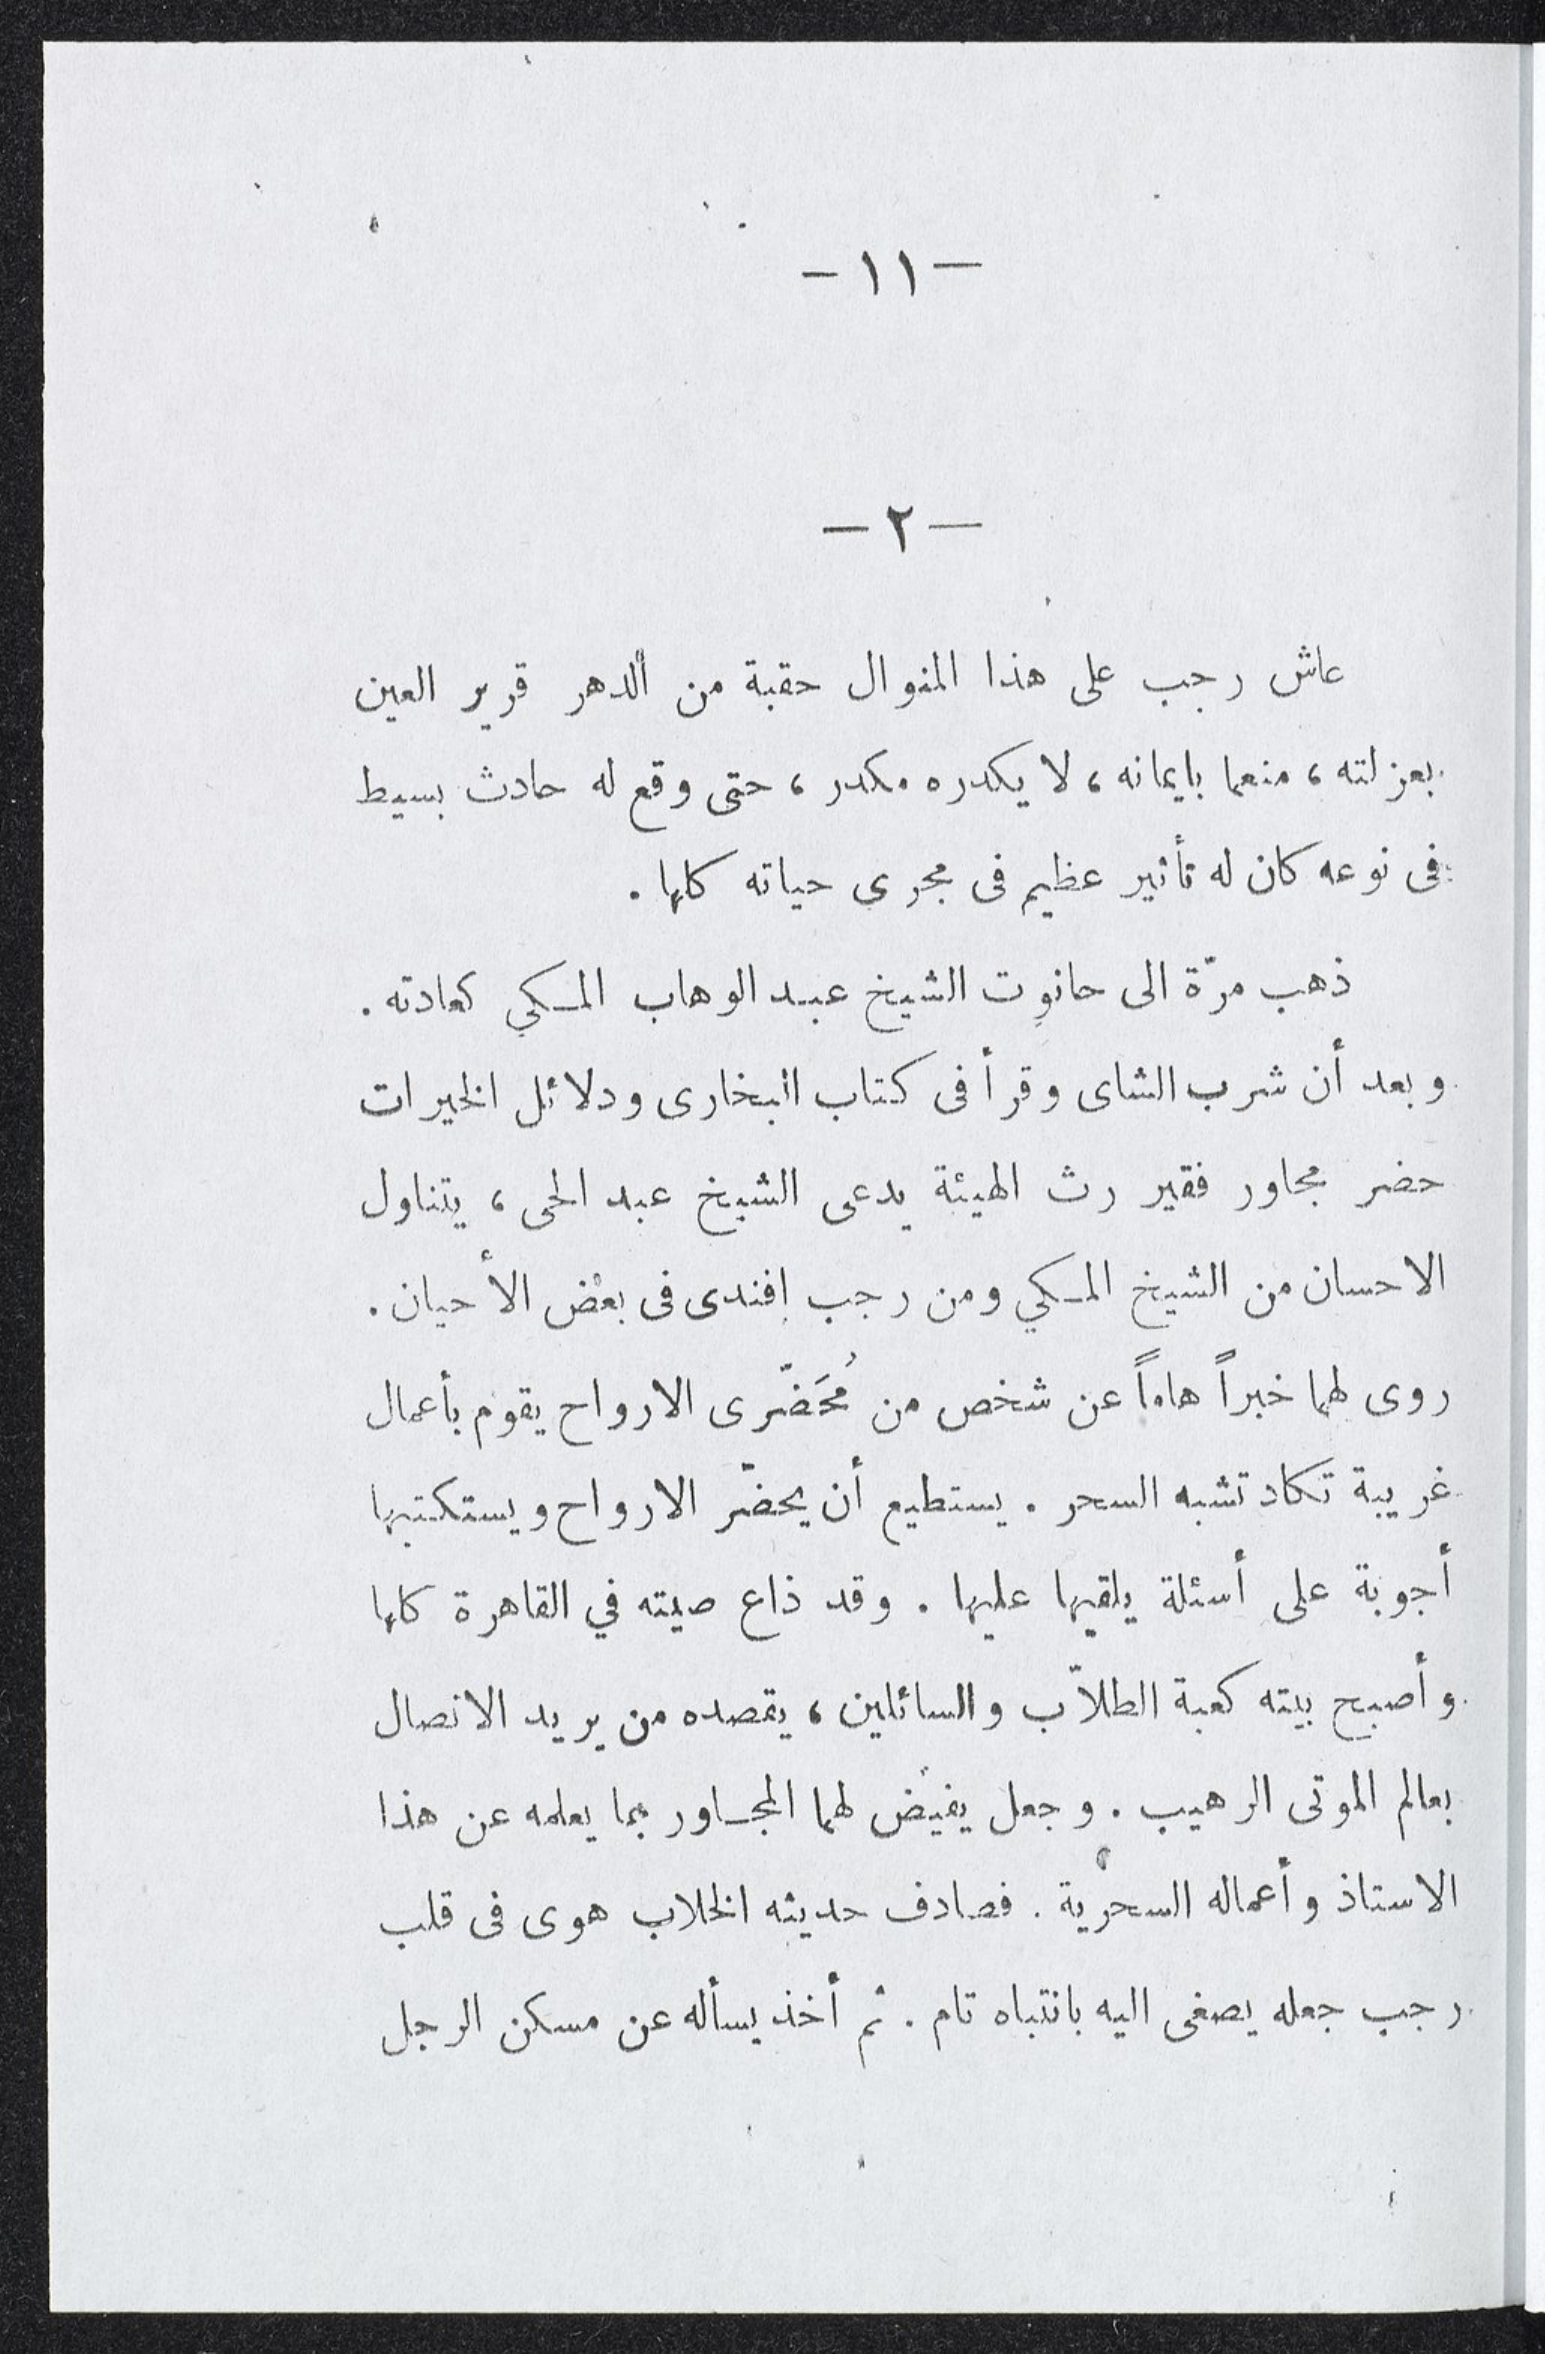 — ١١ —
— ٢ —
عاش رجب على هذا المنوال حقبة من الدهر قرير العين
بعزلته ، منعما بايمانه ، لا يكدره مكدر ، حتى وقع له حادث بسيط
فى نوعه كان له تأثير عظيم فى مجرى حياته كلها .
ذهب مرّة الى حانوت الشيخ عبد الوهاب المكي كعادته .
وبعد أن شرب الشاى وقرأ فى كتاب البخارى ودلائل الخيرات
حضر مجاور فقير رث الهيئة يدعى الشيخ عبد الحى ، يتناول
الاحسان من الشيخ المكي ومن رجب افندى فى بعض الأحيان .
روى لهما خبراً هاماً عن شخص من مُحَضّرى الارواح يقوم بأعمال
غريبة تكاد تشبه السحر . يستطيع أن يحضّر الارواح ويستكتبها
أجوبة على أسئلة يلقيها عليها . وقد ذاع صيته في القاهرة كلها
وأصبح بيته كعبة الطلاّب والسائلين ، يقصده من يريد الاتصال
بعالم الموتى الرهيب . وجعل يفيض لهما المجاور بما يعلمه عن هذا
الاستاذ وأعماله السحرية . فصادف حديثه الخلاب هوى فى قلب
رجب جعله يصغى اليه بانتباه تام . ثم أخذ يسأله عن مسكن الرجل